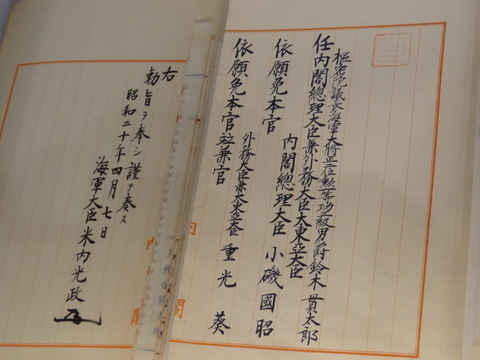 樞密院議長海軍大將正二位勳一等功三級男爵鈴木貫太郎
任內閣總理大臣兼外務大臣大東亞大臣
內閣總理大臣 小磯國昭
依願免本官
外務大臣兼大東亞大臣 重光 葵
依願免本官竝兼官
右
勅旨ヲ奉シ謹テ奏ス
昭和二十年四月七日
海軍大臣 米內光政
內閣